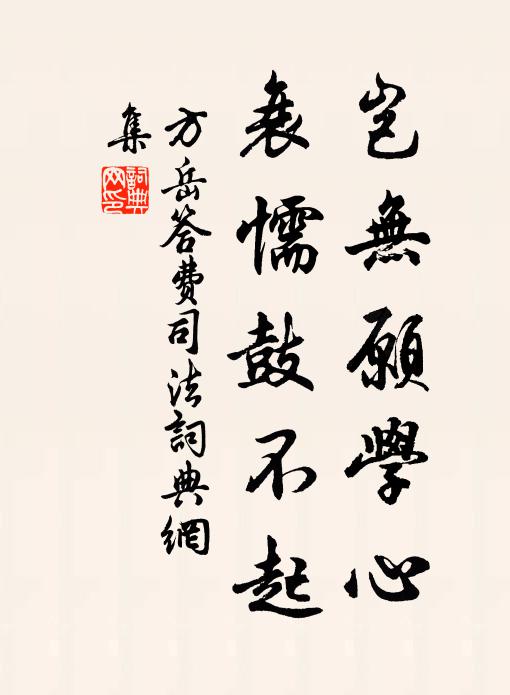 豈無願學心
衰懦鼓不起
方岳答費司法詞典網
集
詞典網印